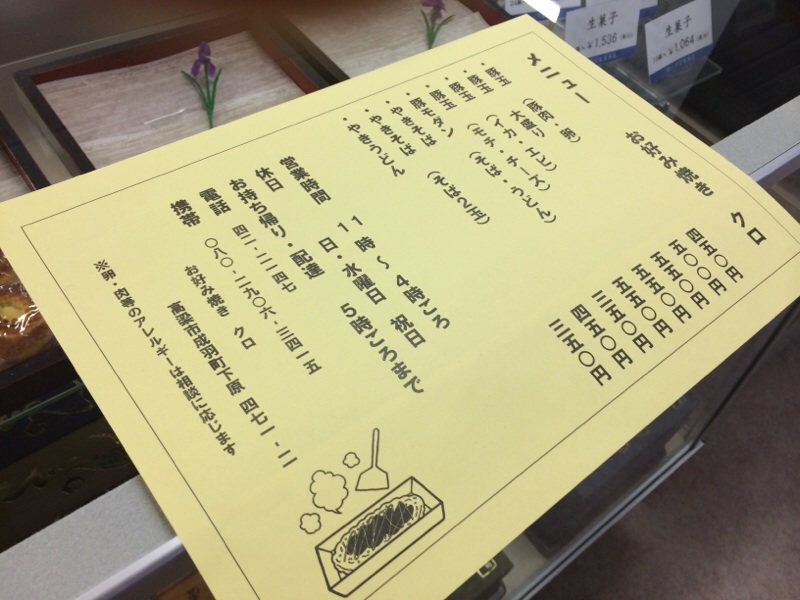 お好み焼き クロ
メニュー
・豚玉 (豚肉・卵) 四五〇円
・豚玉 大盛り 五〇〇円
・豚玉 (イカ・エビ) 五五〇円
・豚玉 (モチ・チーズ) 五五〇円
・豚モダン (そば・うどん) 五五〇円
・やきそば 三五〇円
・やきそば (そば2玉) 四五〇円
・やきうどん 三五〇円
営業時間 11時〜4時ごろ
休日 日・水曜日 祝日
お持ち帰り・配達 5時ごろまで
電話 四二-二一四七
携帯 〇八〇-二九〇六-三四一五
お好み焼き クロ
高梁市成羽町下原 四七一-二
※卵・肉等のアレルギーは相談に応じます
生菓子
¥1,536(税込)
生菓子
¥1,064(税込)